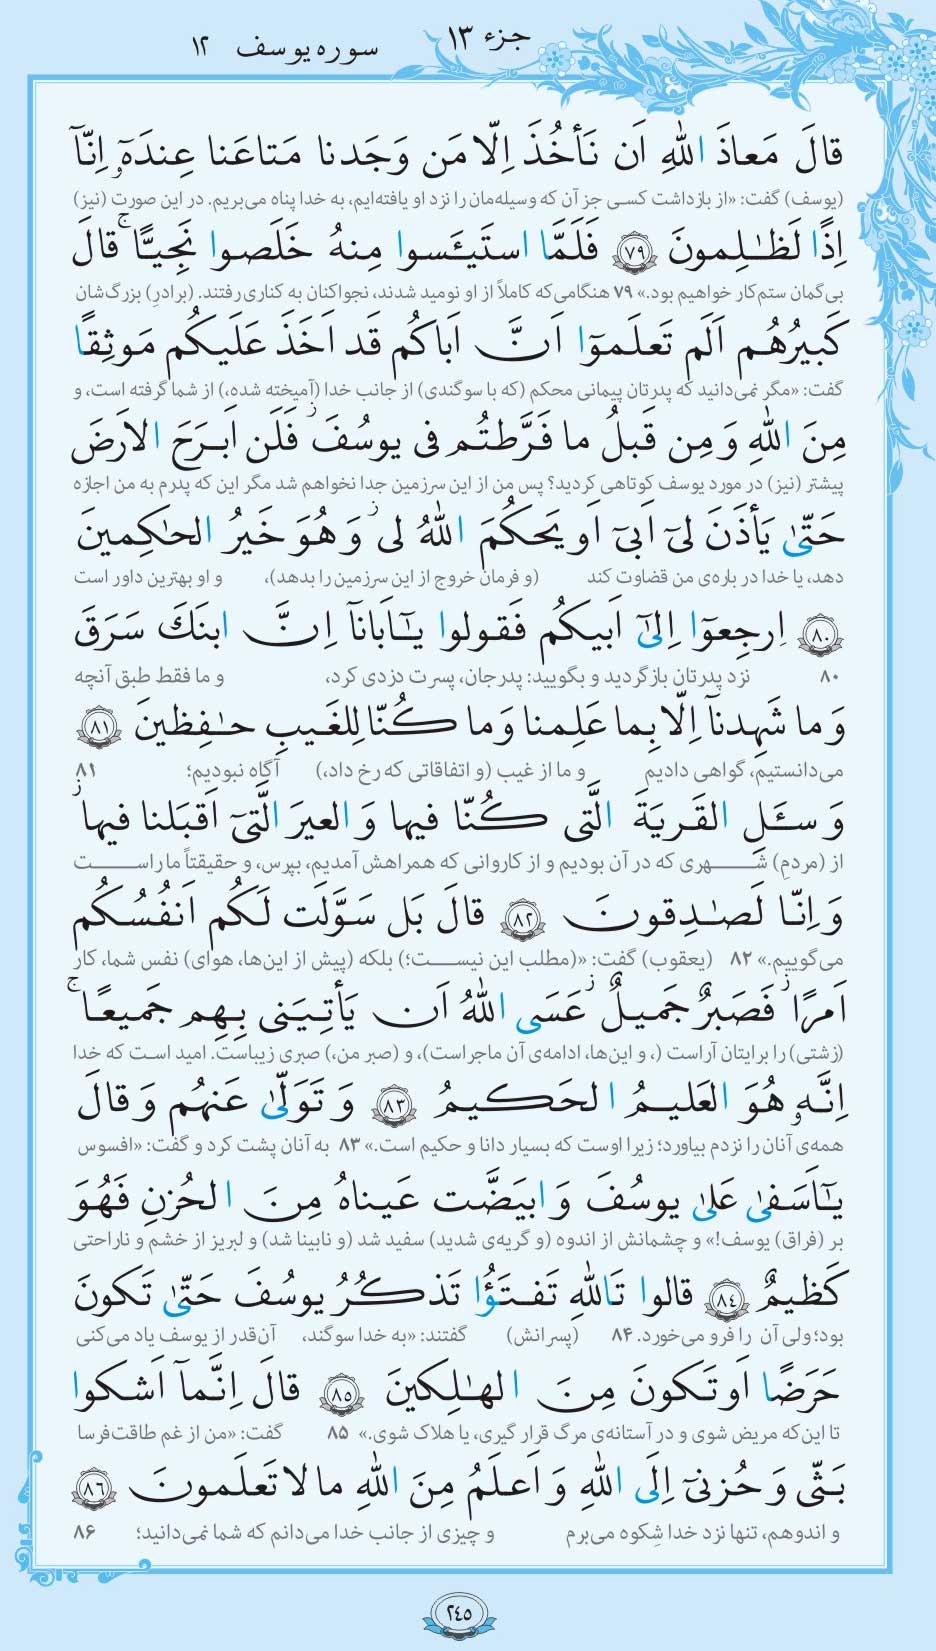 جزء ۱۳
سوره یوسف ۱۲
قالَ مَعاذَ اللهِ اَن نَأخُذَ اِلّا مَن وَجَدنا مَتاعَنا عِندَهٓ اِنّآ
(یوسف) گفت: «از بازداشت کسی جز آن که وسیله‌مان را نزد او یافته‌ایم، به خدا پناه می‌بریم. در این صورت (نیز)
اِذًا لَظٰلِمونَ ﴿۷۹﴾ فَلَمَّا استَیـَٔسوا مِنهُ خَلَصوا نَجِیًّاۚ قالَ
بی‌گمان ستم‌کار خواهیم بود.» ۷۹ هنگامی‌که کاملاً از او نومید شدند، نجواکنان به کناری رفتند. (برادرِ) بزرگ‌شان
کَبیرُهُم اَلَم تَعلَموٓا اَنَّ اَباکُم قَد اَخَذَ عَلَیکُم مَوثِقًا
گفت: «مگر نمی‌دانید که پدرتان پیمانی محکم (که با سوگندی) از جانب خدا (آمیخته شده،) از شما گرفته است، و
مِنَ اللهِ وَ مِن قَبلُ ما فَرَّطتُم فی یوسُفَۖ فَلَن اَبرَحَ الاَرضَ
پیشتر (نیز) در مورد یوسف کوتاهی کردید؟ پس من از این سرزمین جدا نخواهم شد مگر این که پدرم به من اجازه
حَتّیٰ یَأذَنَ لیٓ اَبیٓ اَو یَحکُمَ اللهُ لیۖ وَ هُوَ خَیرُ الحاکِمینَ
دهد، یا خدا در باره‌ی من قضاوت کند (و فرمان خروج از این سرزمین را بدهد)، و او بهترین داور است
﴿۸۰﴾ اِرجِعوٓا اِلیٰٓ اَبیکُم فَقولوا یٰٓاَبانآ اِنَّ ابنَكَ سَرَقَ
۸۰ نزد پدرتان بازگردید و بگویید: پدرجان، پسرت دزدی کرد، و ما فقط طبق آنچه
وَ ما شَهِدنآ اِلّا بِما عَلِمنا وَ ما کُنّا لِلغَیبِ حٰفِظینَ ﴿۸۱﴾
می‌دانستیم، گواهی دادیم و ما از غیب (و اتفاقاتی که رخ داد،) آگاه نبودیم؛ ۸۱
وَ سـَٔلِ القَریَةَ الَّتی کُنّا فیها وَ العیرَ الَّتیٓ اَقبَلنا فیهاۖ
از (مردمِ) شهری که در آن بودیم و از کاروانی که همراهش آمدیم، بپرس، و حقیقتاً ما راست
وَ اِنّا لَصٰدِقونَ ﴿۸۲﴾ قالَ بَل سَوَّلَت لَکُم اَنفُسُکُم
می‌گوییم.» ۸۲ (یعقوب) گفت: «(مطلب این نیست؛) بلکه (پیش از این‌ها، هوای) نفس شما، کار
اَمرًاۖ فَصَبرٌ جَمیلٌۖ عَسَی اللهُ اَن یَأتِیَنی بِهِم جَمیعًاۚ
(زشتی) را برایتان آراست (، و این‌ها، ادامه‌ی آن ماجراست)، و (صبر من،) صبری زیباست. امید است که خدا
اِنَّهٗ هُوَ العَلیمُ الحَکیمُ ﴿۸۳﴾ وَ تَوَلّیٰ عَنهُم وَ قالَ
همه‌ی آنان را نزدم بیاورد؛ زیرا اوست که بسیار دانا و حکیم است.» ۸۳ به آنان پشت کرد و گفت: «افسوس
یٰٓاَسَفیٰ عَلیٰ یوسُفَ وَ ابیَضَّت عَیناهُ مِنَ الحُزنِ فَهُوَ
بر (فراق) یوسف!» و چشمانش از اندوه (و گریه‌ی شدید) سفید شد (و نابینا شد) و لبریز از خشم و ناراحتی
کَظیمٌ ﴿۸۴﴾ قالوا تَاللهِ تَفتَؤُا تَذکُرُ یوسُفَ حَتّیٰ تَکونَ
بود؛ ولی آن را فرو می‌خورد. ۸۴ (پسرانش) گفتند: «به خدا سوگند، آن‌قدر از یوسف یاد می‌کنی
حَرَضًا اَو تَکونَ مِنَ الهٰلِکینَ ﴿۸۵﴾ قالَ اِنَّمآ اَشکوا
تا این‌که مریض شوی و در آستانه‌ی مرگ قرار گیری، یا هلاک شوی.» ۸۵ گفت: «من از غم طاقت‌فرسا
بَثّی وَ حُزنیٓ اِلَی اللهِ وَ اَعلَمُ مِنَ اللهِ ما لا تَعلَمونَ ﴿۸۶﴾
و اندوهم، تنها نزد خدا شِکوه می‌برم و چیزی از جانب خدا می‌دانم که شما نمی‌دانید؛ ۸۶
۲۴۵